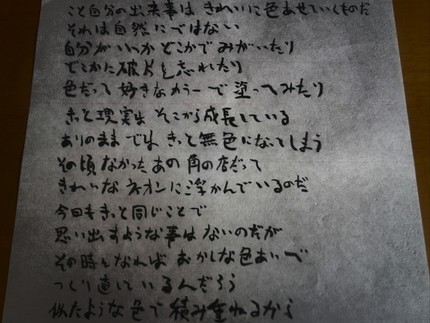 こと自分の出来事は きれいに色あせていくものだ
それは自然にではない
自分がいつか どこかで みがいたり
どこかに破片を忘れたり
色だって 好きなカラーで 塗ってみたり
きっと現実は そこから成長している
ありのままでは きっと無色になってしまう
その頃なかった あの 角の店だって
きれいなネオンに浮かんでいるのだ
今日もきっと同じことで
思い出すような事は ないのだが
その時となれば おかしな色あいで
つくり直しているんだろう
似たような色で 積み重ねるから